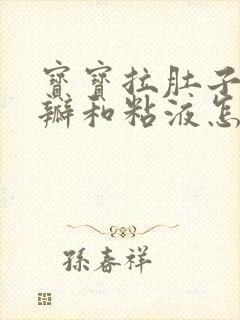 寶寶拉肚子
瓣和粘液怎
孫春祥